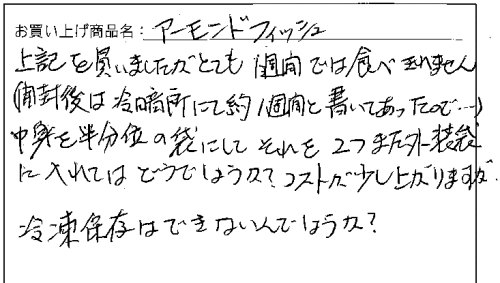 お買い上げ商品名：アーモンドフィッシュ
上記を買いましたがとても1週間では食べきれません
(開封後は冷暗所にて約1週間と書いてあったので…)
中身を半分位の袋にして それを2つまた外装袋
に入れてはどうでしょうか？コストが少し上がりますが.
冷凍保存はできないんでしょうか？